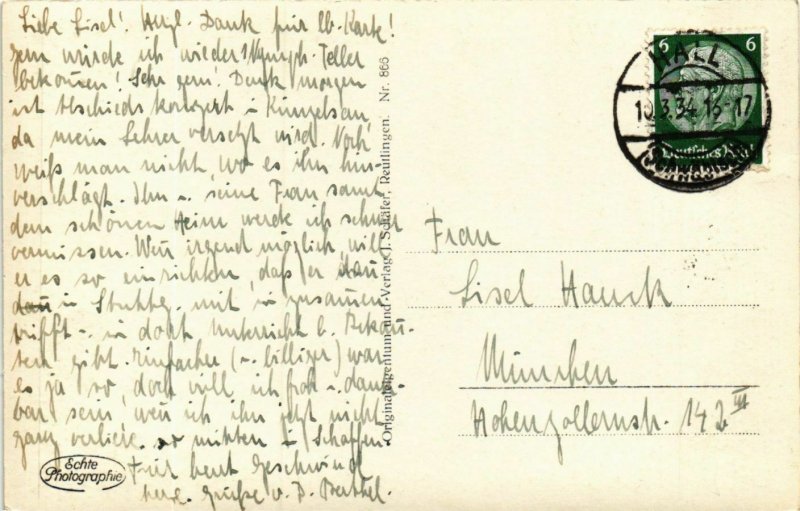 Liebe Lisel! Herzl. Dank für lb. Karte!
würde ich wieder Teller
bekommen! Sehr gern! Denk morgen
ist Abschiedskonzert in Künzelsau,
da mein Lehrer versetzt wird. Noch
weiß man nicht, wo es ihn hin-
verschlägt. Ihn u. seine Frau samt
dem schönen Heim werde ich schwer
vermissen. Wenn irgend möglich will
er es so einrichten, daß er
in Stuttg. mit zusammen
trifft u. dort Unterricht b. Bekan-
ten gibt. Einfacher (u. billiger) war
es ja so, doch will ich froh u. dank-
bar sein, wenn ich ihn jetzt nicht
ganz verliere. mitten i. Schaffen
Für heut Geschwind
herz. Grüße v. D. Berthel.
Echte
Photographie
Originaleigentum und Verlag J. Schäfer, Reutlingen. Nr. 866
6 6
HALL
10.3.34.16-17
Deutsches Reich
Frau
Lisel Hauck
München
Hohenzollernstr. 142 III